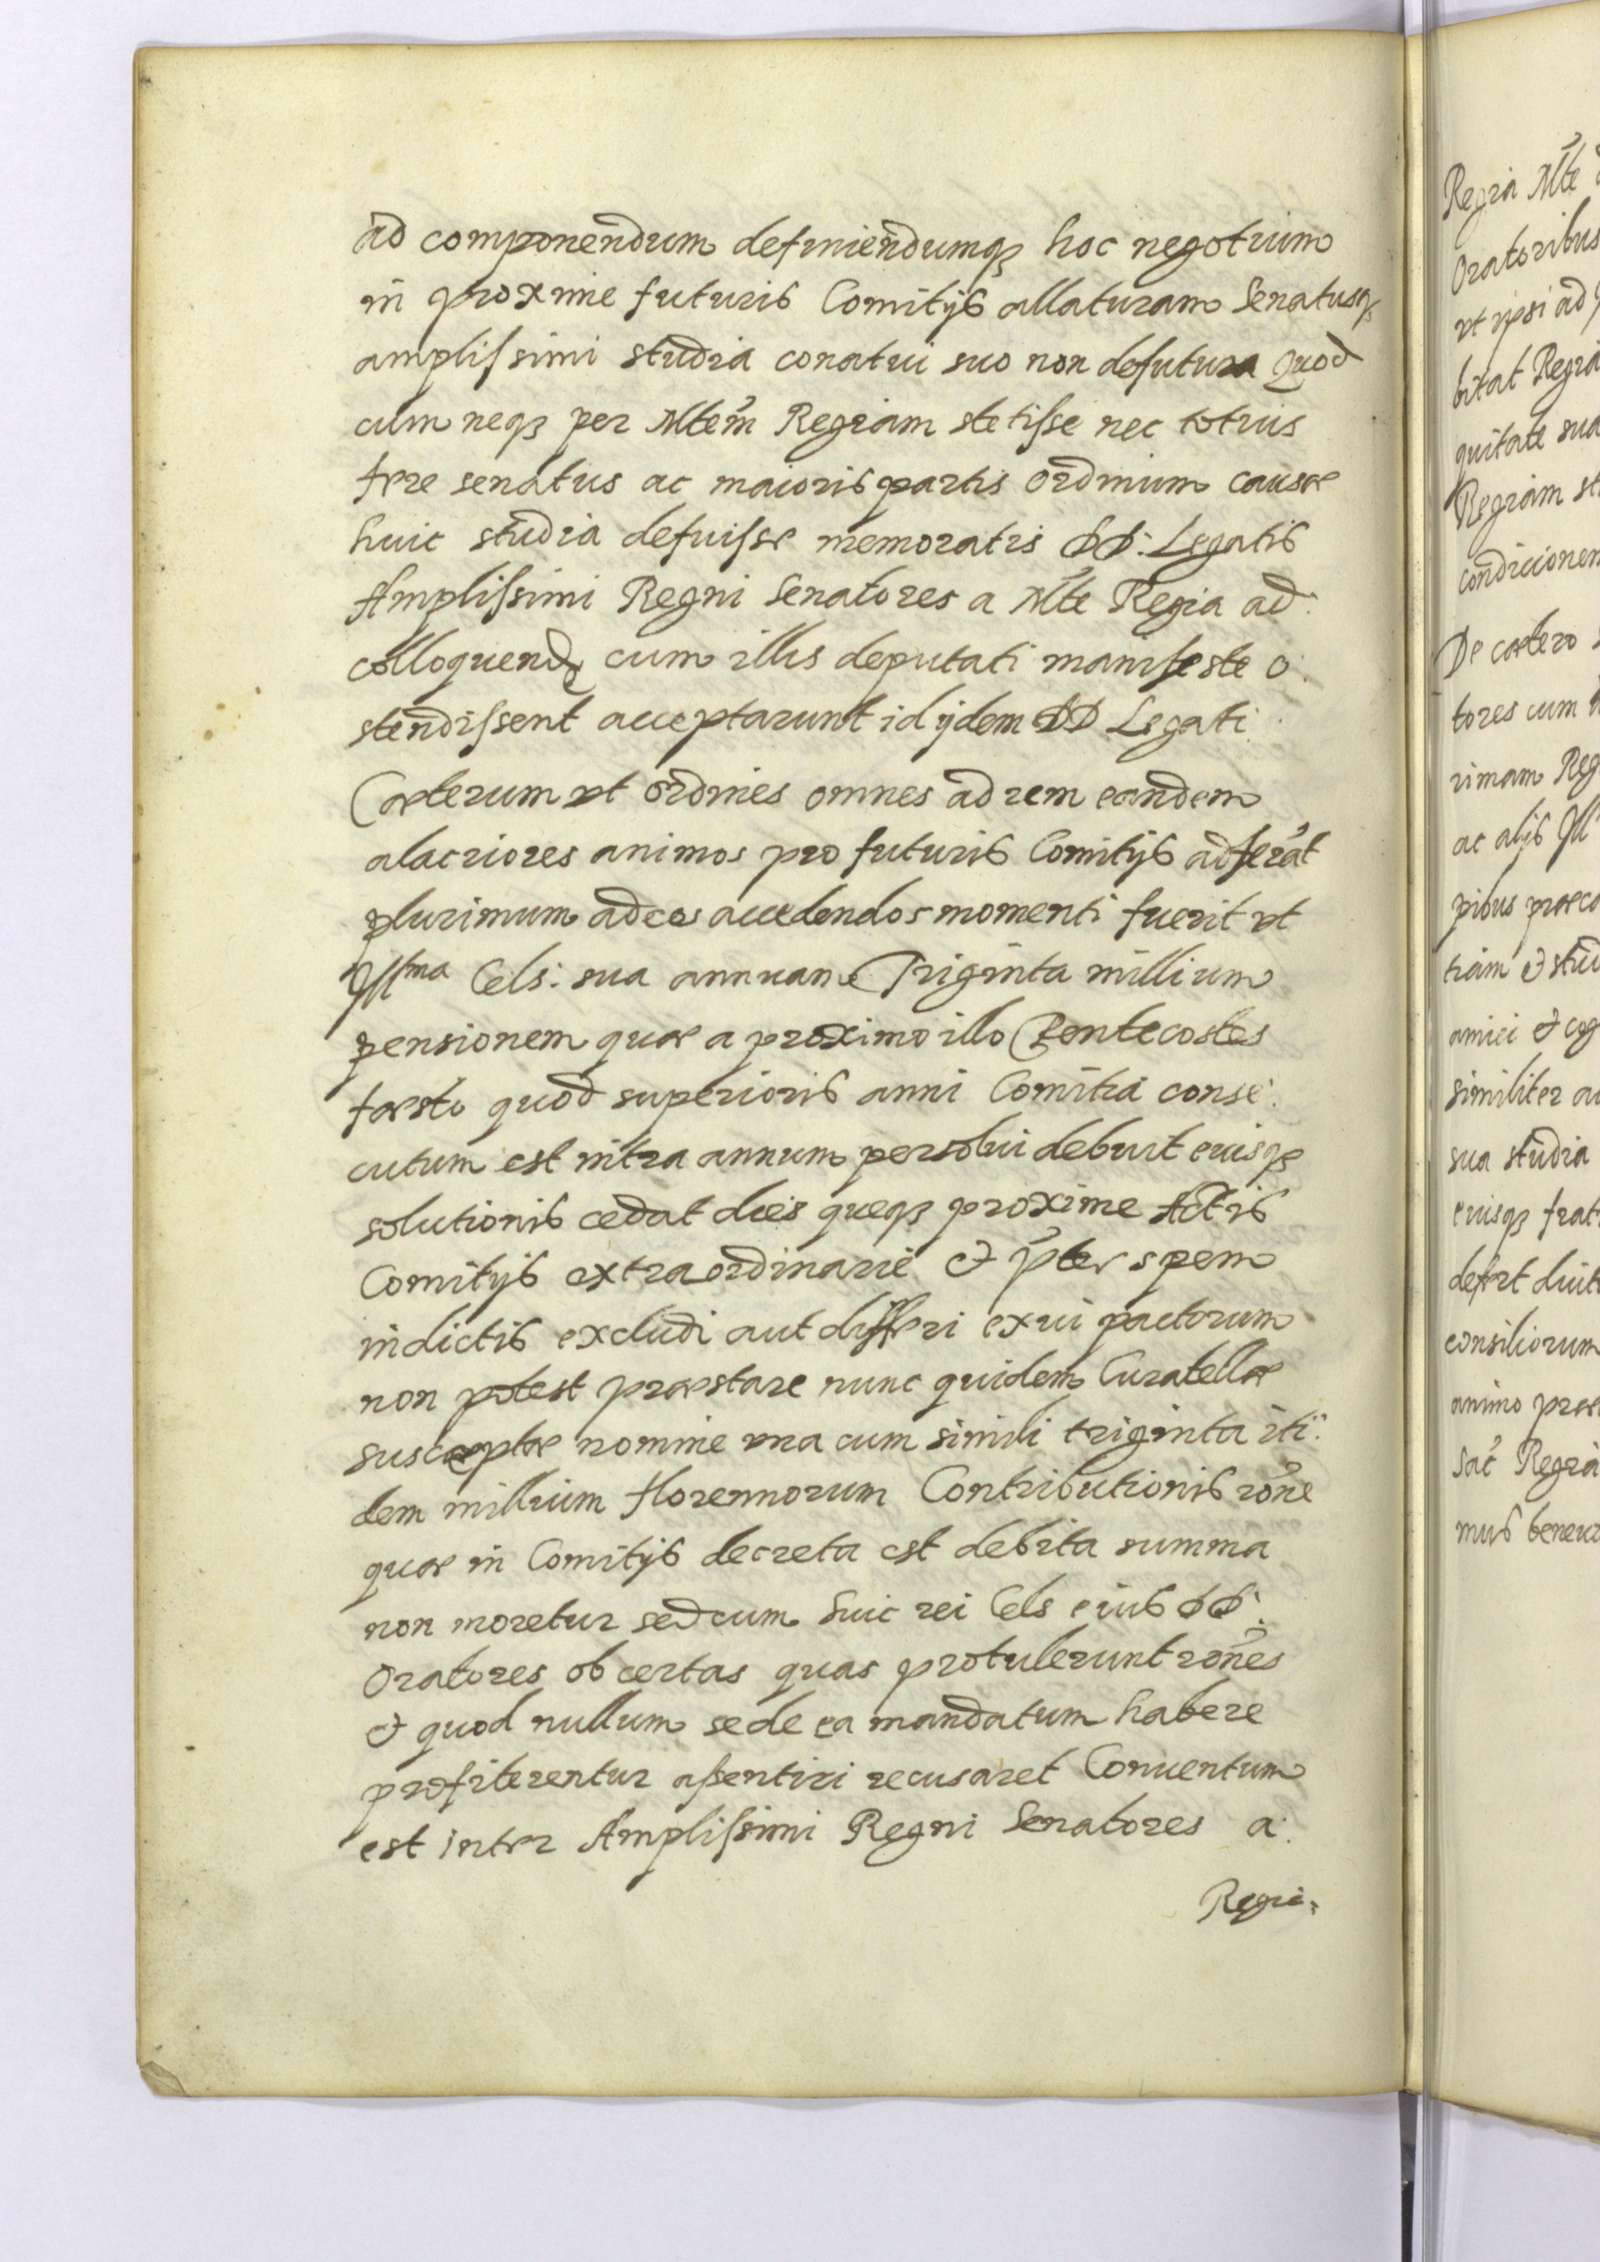 ad componendum definiendumq₃ hoc negotium
in proxime futuris Comitijs allaturam Senatusq₃
amplissimi studia conatui suo non defutura Quod
cum neq₃ per Mtem Regiam stetisse nec totius
fere senatus ac maioris partis ordinum causæ
huic studia defuisse memoratis DD: Legatis
Amplissimi Regni Senatores a Mte Regia ad:
colloquend cum illis deputati manifeste o:
stendissent acceptarunt id ijdem DD Legati
Cæterum vt ordines omnes ad rem eandem
alacriores animos pro futuris Comitijs adferāt
plurimum ad eos accedendos momenti fuerit vt
Illma Cels: sua annuam Triginta millium
pensionem quæ a proximo illo Pentecostes
fæsto quod superioris anni Comitia conse:
cutum est intra annum persolui debuit euisq₃
solutionis cedat dies queq₃ proxime Actis
Comitijs extraordinarie & p̄ter spem
indictis excludi aut differi ex vi pactorum
non potest præstare nunc quidem Curatellæ
suscæptæ nomine vna cum simili triginta iti:
dem millium florennorum Contributionis rōne
quæ in Comitijs decreta est debita summa
non moretur sed cum huic rei Cels eius DD:
Oratores ob certas quas protulerunt rōnes
& quod nullum se de ea mandatum habere
profiterentur assentiri recusaret Conuentum
est inter Amplissimi Regni Senatores a:
Regia
Regia Mte
Oratoribus
vt ipsi ad
bitat Regia
quitate sua
Regiam st
condicionem
De cætero
tores cum
rimam Reg
ac alijs Ill
pibus præca
tiam & stu
amici & cog
similiter au
sua studia
eiusq₃ frat
defert diut
consiliorum
animo præ
Sac Regia
mus beneu